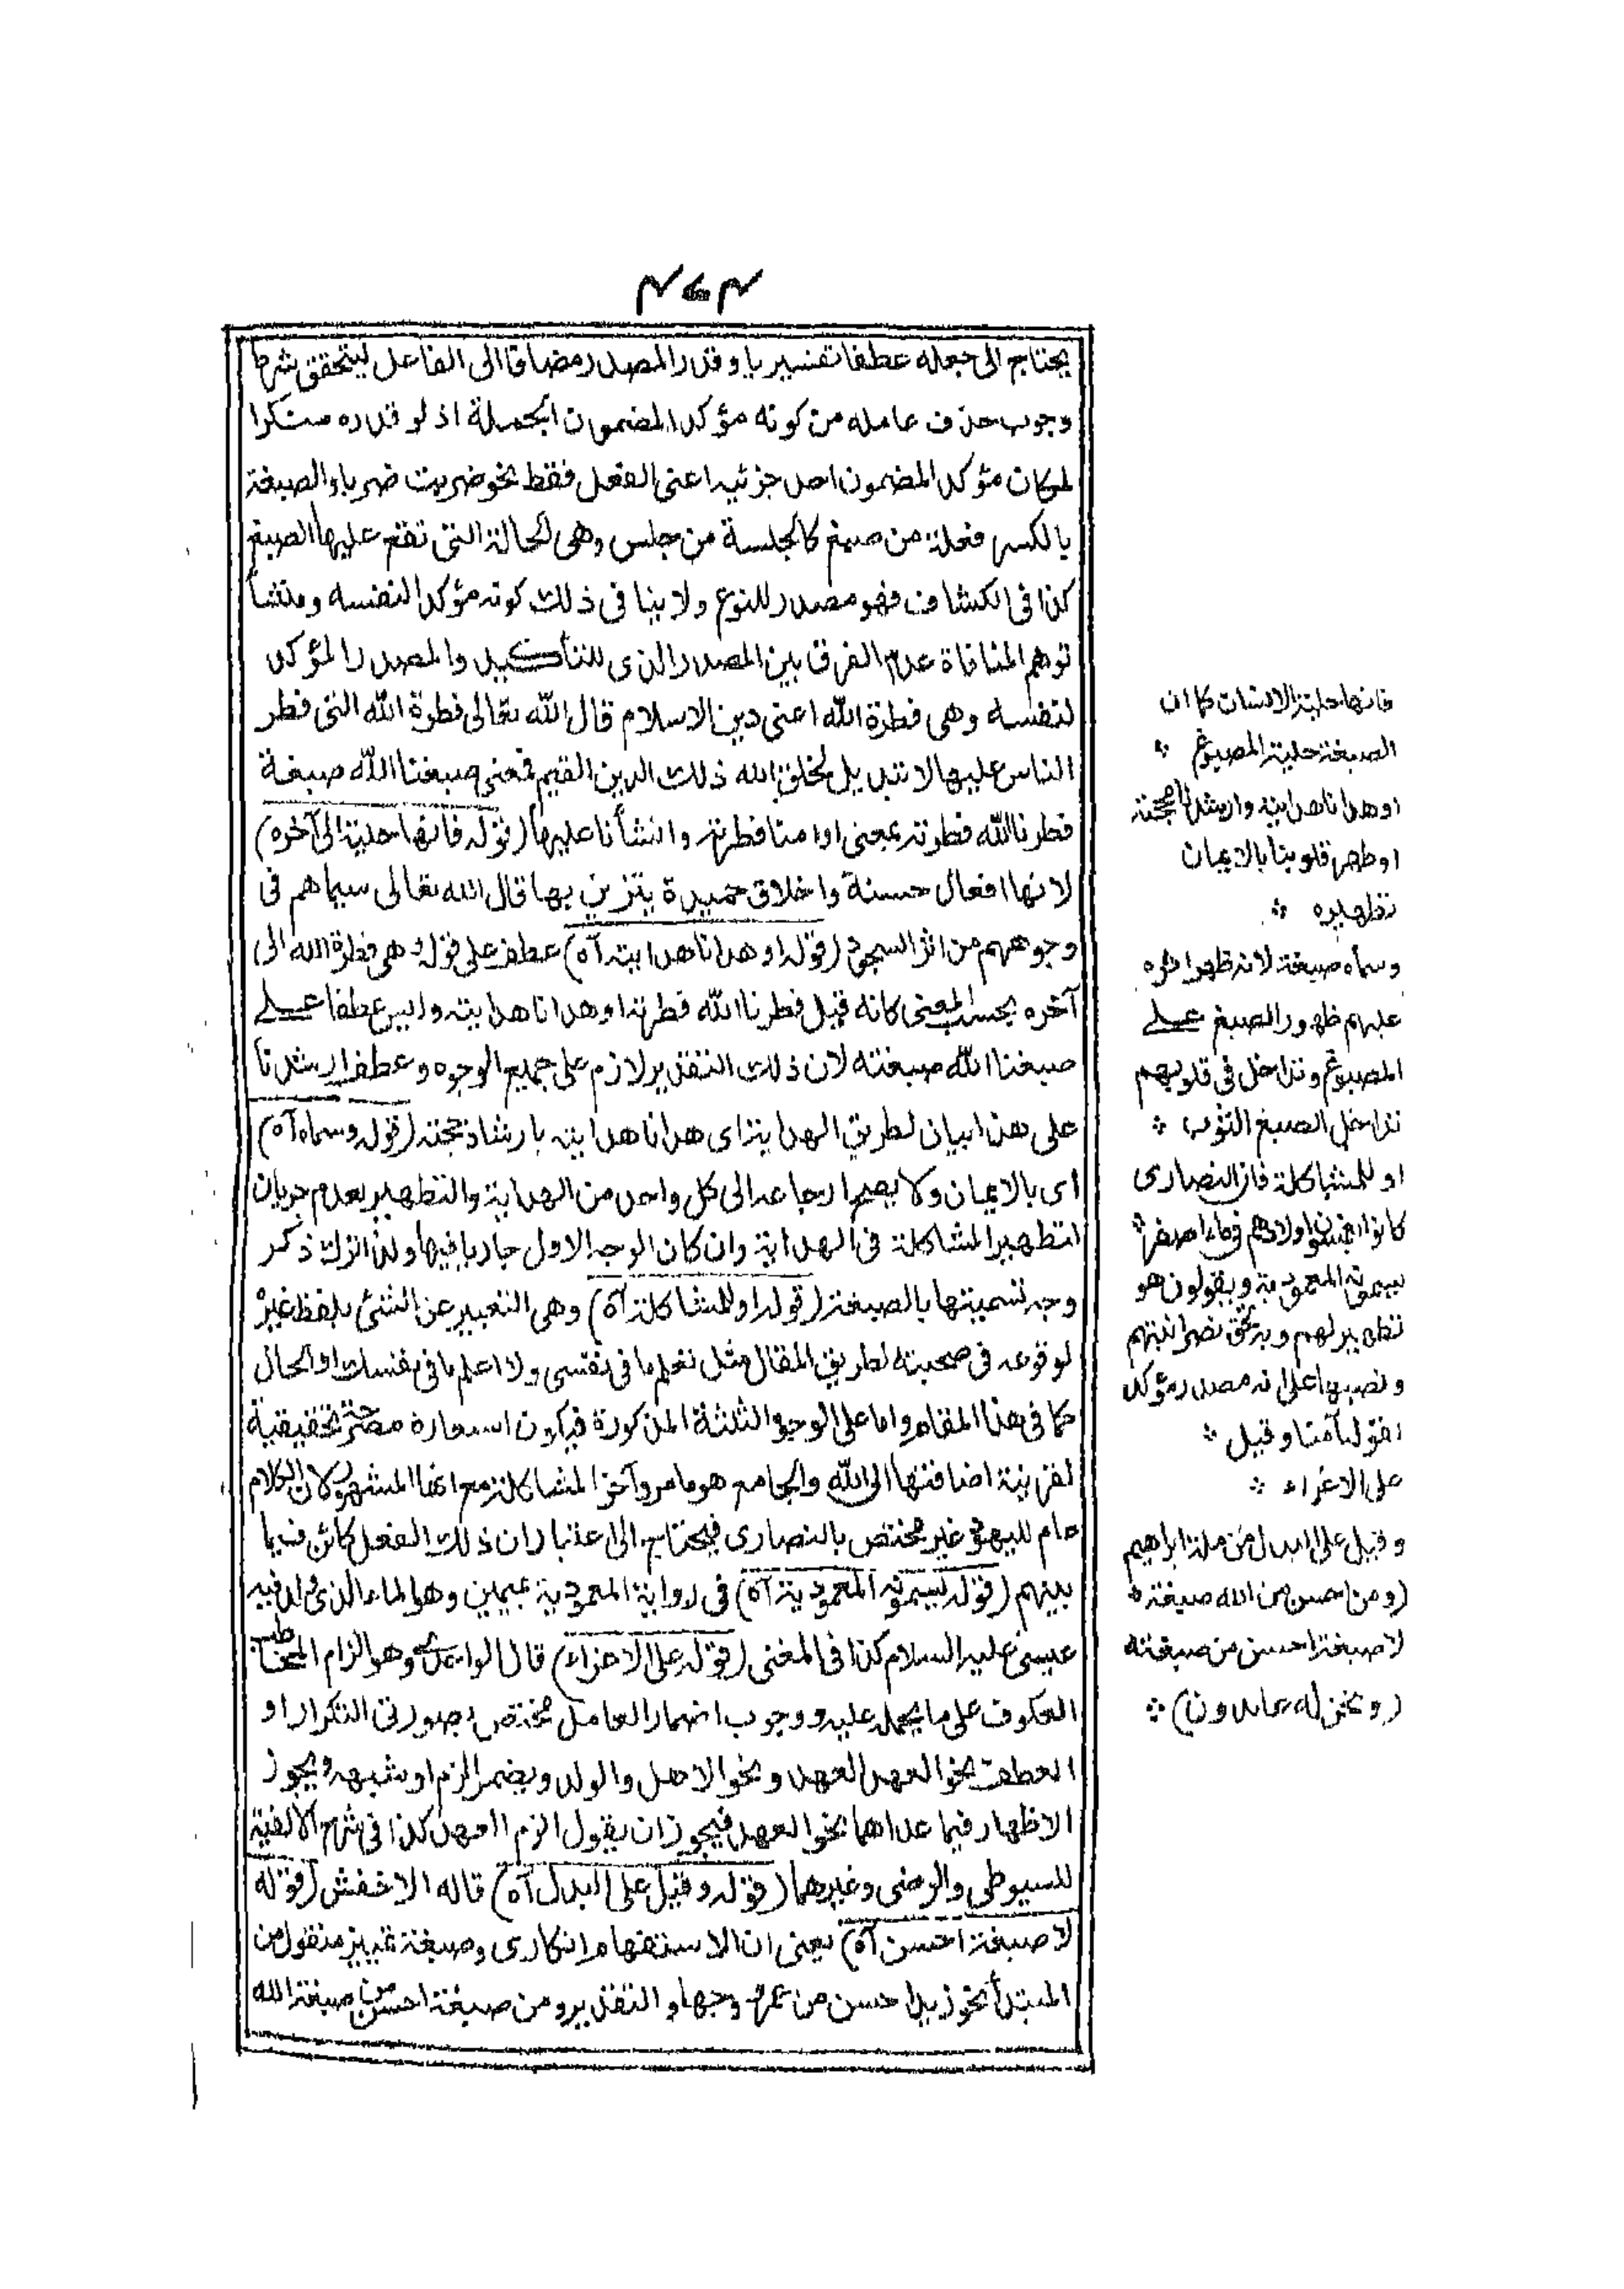 ٤٧٣
يحتاج الى جعله عطفا تفسيريا وقدر المصدر مضافا الى الفاعل ليتحقق شرط
وجوب حذف عامله من كونه مؤكدا لمضمون الجملة اذ لو قدره منكرا
لكان مؤكدا لمضمون احد جزئيه اعنى الفعل فقط نحو ضربت ضربا والصبغة
بالكسر فعلة من صبغ كالجلسة من جلس وهى الحالة التى تقع عليها الصبغ
كذا فى الكشاف فهو مصدر للنوع ولا ينافى ذلك كونه مؤكدا لنفسه ومنشأ
توهم المنافاة عدم الفرق بين المصدر الذى للتأكيد والمصدر المؤكد
لنفسه وهى فطرة الله اعنى دين الاسلام قال الله تعالى فطرة الله التى فطر
الناس عليها لا تبديل لخلق الله ذلك الدين القيم فمعنى صبغنا الله صبغة
فطرنا الله فطرته بمعنى اوامنا فطرته وانشأنا عليها (قوله فانها حلية الى آخره)
لانها افعال حسنة واخلاق حميدة يتزين بها قال الله تعالى سيماهم فى
وجوههم من اثر السجود (قوله او هدانا هدايته آه) عطف على قوله وهى فطرة الله الى
آخره بحسب المعنى كانه قيل فطرنا الله فطرته او هدانا هدايته وليس عطفا على
صبغنا الله صبغته لان ذلك التقدير لازم على جميع الوجوه وعطف ارشدنا
على هدانا بيان لطريق الهداية اى هدانا هدايته بارشاد حجته (قوله وسماه آه)
اى بالايمان ولا يصح ارجاعه الى كل واحد من الهداية والتطهير بعدم جريان
التطهير المشاكلة فى الهداية وان كان الوجه الاول جاريا فيها ولذا ترك ذكر
وجه تسميتها بالصبغة (قوله او للمشاكلة آه) وهى التعبير عن الشئ بلفظ غيره
لوقوعه فى صحبته لطريق المقال مثل تعلم ما فى نفسى ولا اعلم ما فى نفسك او الحال
كما فى هذا المقام واما على الوجوه الثلثة المذكورة فيكون استعارة مصرحة تحقيقية
لقرينة اضافتها الى الله والجامع هو ما مر وآخر المشاكلة مع انها المشهور لان الكلام
عام لليهود غير مختص بالنصارى فيحتاج الى اعتبار ان ذلك الفعل كائن فيما
بينهم (قوله يسمونه المعمودية آه) فى رواية المعمودية بميمين وهو الماء الذى ولد فيه
عيسى عليه السلام كذا فى المغنى (قوله على الاغراء) قال الواحدى وهو الزام المخاطب
العكوف على ما يحمله عليه ووجوب اضمار العامل مختص بصورتى التكرار او
العطف نحو العهد العهد ونحو الاهل والولد ويضمر الزم او شبهه ويجوز
الاظهار فيما عداهما نحو العهد فيجوز ان يقول الزم العهد كذا فى شرح الالفية
للسيوطى والرضى وغيرهما (قوله وقيل على البدل آه) قاله الاخفش (قوله
لا صبغة احسن آه) يعنى ان الاستفهام انكارى وصبغة تمييز منقول من
المبتدأ نحو زيد احسن من عمرو وجها والتقدير ومن صبغة احسن من صبغة الله
فانها حلية الانسان كما ان
الصبغة حلية المصبوغ
او هدانا هدايته وارشدنا حجته
او طهر قلوبنا بالايمان
تطهيره
وسماه صبغة لانه ظهر اثره
عليهم ظهور الصبغ على
المصبوغ وتداخل فى قلوبهم
تداخل الصبغ الثوب
او للمشاكلة فان النصارى
كانوا يغمسون اولادهم فى ماء اصفر
يسمونه المعمودية ويقولون هو
تطهير لهم وبه تحقق نصرانيتهم
ونصبها على انه مصدر مؤكد
لقوله آمنا وقيل
على الاغراء
وقيل على البدل من ملة ابراهيم
(ومن احسن من الله صبغة)
لا صبغة احسن من صبغته
(ونحن له عابدون)